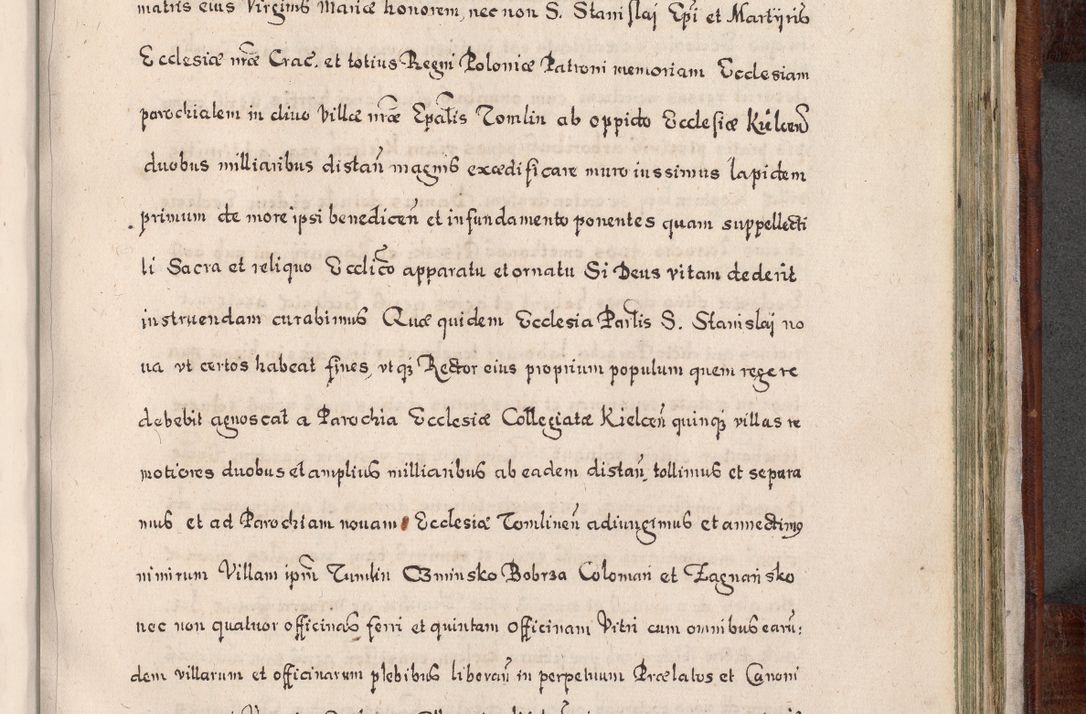 matris eius Virginis Mariæ honorem, nec non S. Stanislaj Epĩ et Martyris
Ecclesiæ nræ Crac. et totius Regni Poloniæ Patroni memoriam Ecclesiam
parochialem in clivo Villæ nræ Epãlis Tomlin ab oppido Ecclesiæ Kielceñ
duobus milliaribus distañ magnis exædificare muro iussimus lapidem
primum de more ipsi benediceñ et in fundamento ponentes quam suppellecti
li Sacra et reliquo Ecclĩco apparatu et ornatu Si Deus vitam dederit
instruendam curabimus Quæ quidem Ecclesia Parlis S. Stanislaj no
ua vt certos habeat fines, vt qȝ Rector eius proprium populum quem regere
debebit agnoscat a Parochia Ecclesiæ Collegiatæ Kielceñ quinqȝ villas re
motiores duobus et amplius milliaribus ab eadem distañ, tollimus et separa
mus et ad Parochiam nouam Ecclesiæ Tomlineñ adiungimus et annectimꝰ
nimirum Villam ipm̃ Tumlin Czminsko Bobrza Colomań et Zagnańsko
nec non quatuor officinas ferri et quintam officinam Vitri cum omnibus earũ:
dem villarum et officinarum plebibus liberañ in perpetuum Prælatos et Canoni